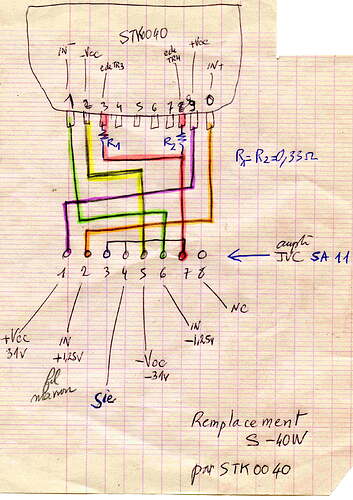 STK040
IN-
-Vcc
TR3
TR4
+Vcc
IN+
1 2 3 4 5 6 7 8 9 0
R1
R2
R1=R2=0,33Ω
ampli
JVC SA 11
1 2 3 4 5 6 7 8
+Vcc
31V
IN
+1,25V
fil
marron
-Vcc
-31V
IN
-1,25V
NC
Remplacement
S-40W
par STK0040